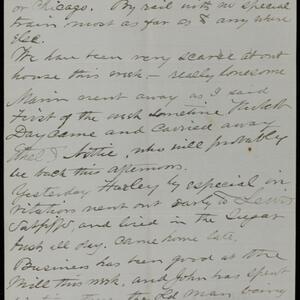 or Chicago. By rail with no special
train most as far as & any where
else.
We have been very scarce about
house this week — really lonesome
Mann went away as I said
first of the week sometime
Day came and carried away
& Nottie, who will probably
be back this afternoon.
Yesterday Harley by especial in-
vitation went out early to Lewis
and lived in the Sugar
bush all day. came home late.
Business has been good at the
Mill this week, and John has spent
Old man being